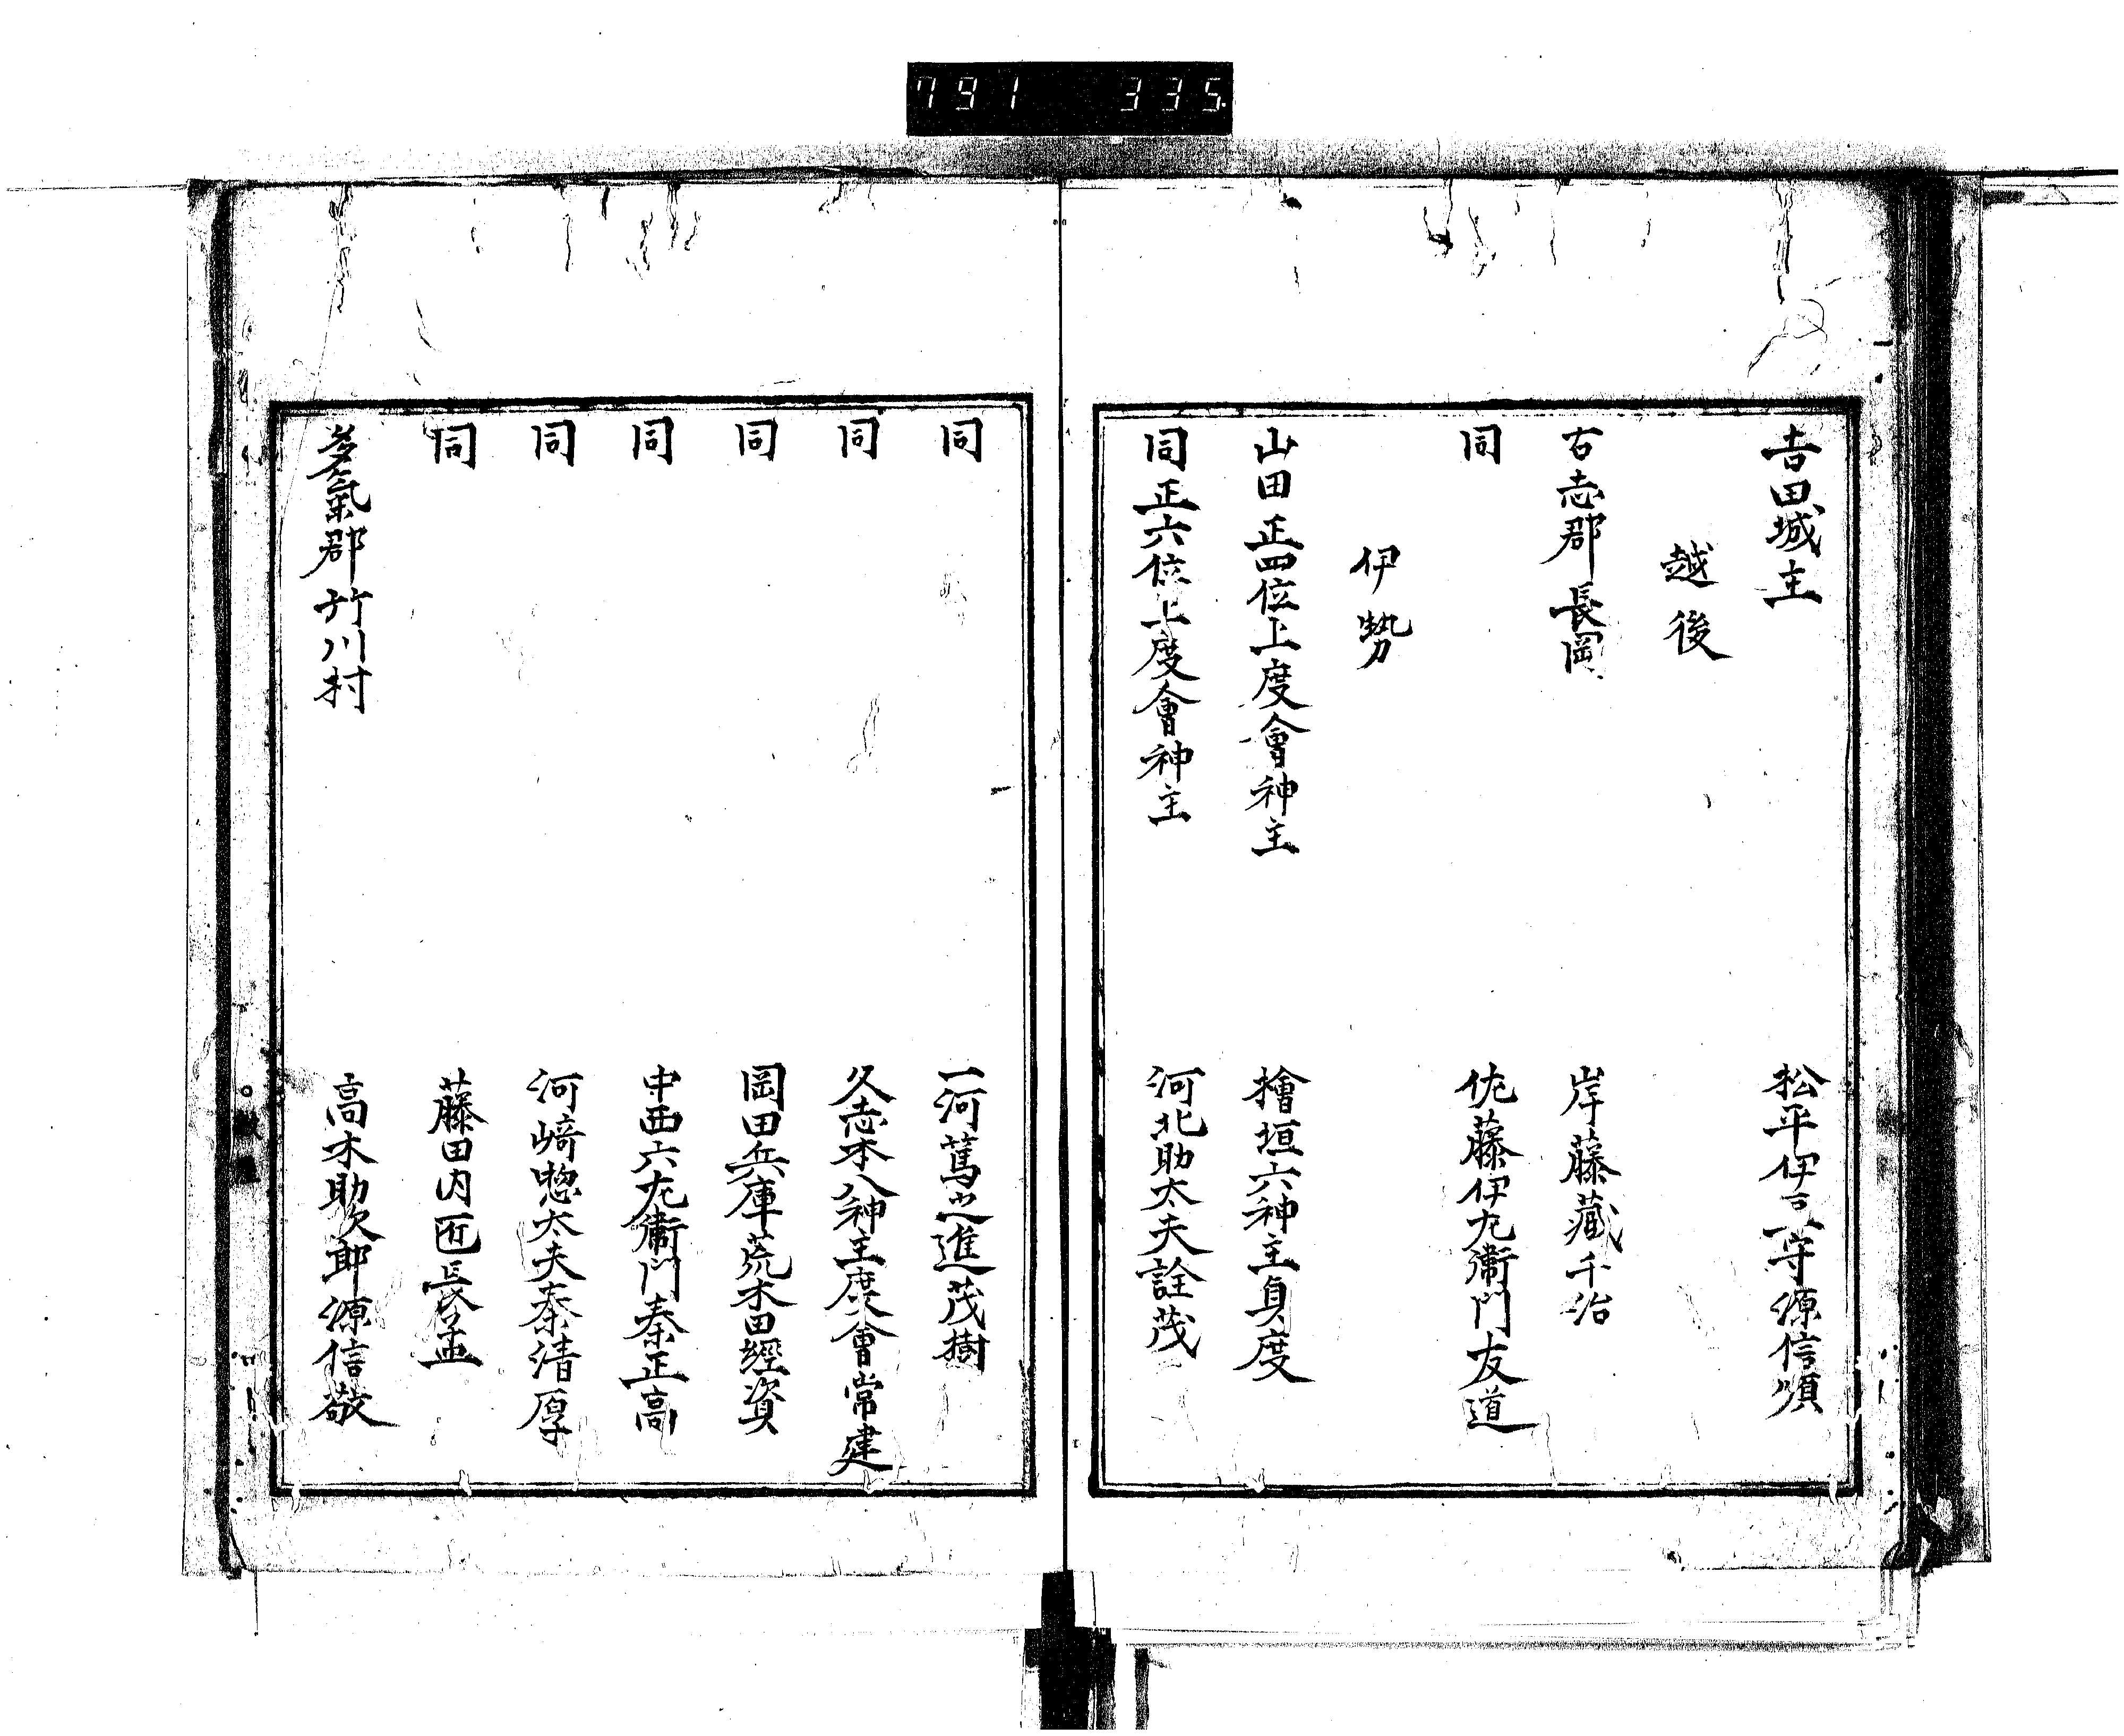 791 335
吉田城主 松平伊豆守源信順
越後
古志郡長岡 岸藤藏千治
同 佐藤伊左衛門友道
伊勢
山田正四位上度會神主 檜垣六神主貞度
同正六位上度會神主 河北助太夫詮茂
同 一河篤之進茂樹
同 久志本八神主度會常建
同 岡田兵庫荒木田經資
同 中西六左衛門秦正高
同 河﨑惣太夫秦清厚
同 藤田内匠長孟
多氣郡竹川村 高木助次郎源信敬